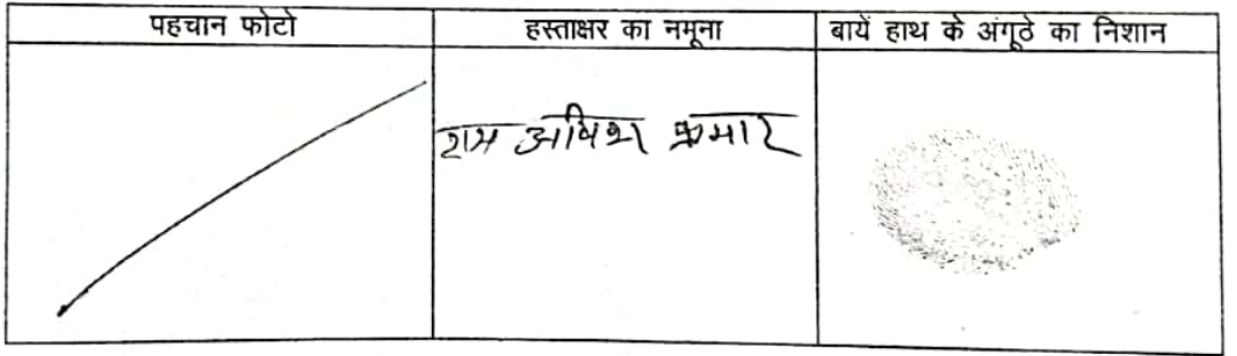 पहचान फोटो
हस्ताक्षर का नमूना
बायें हाथ के अंगूठे का निशान
राम कुमार